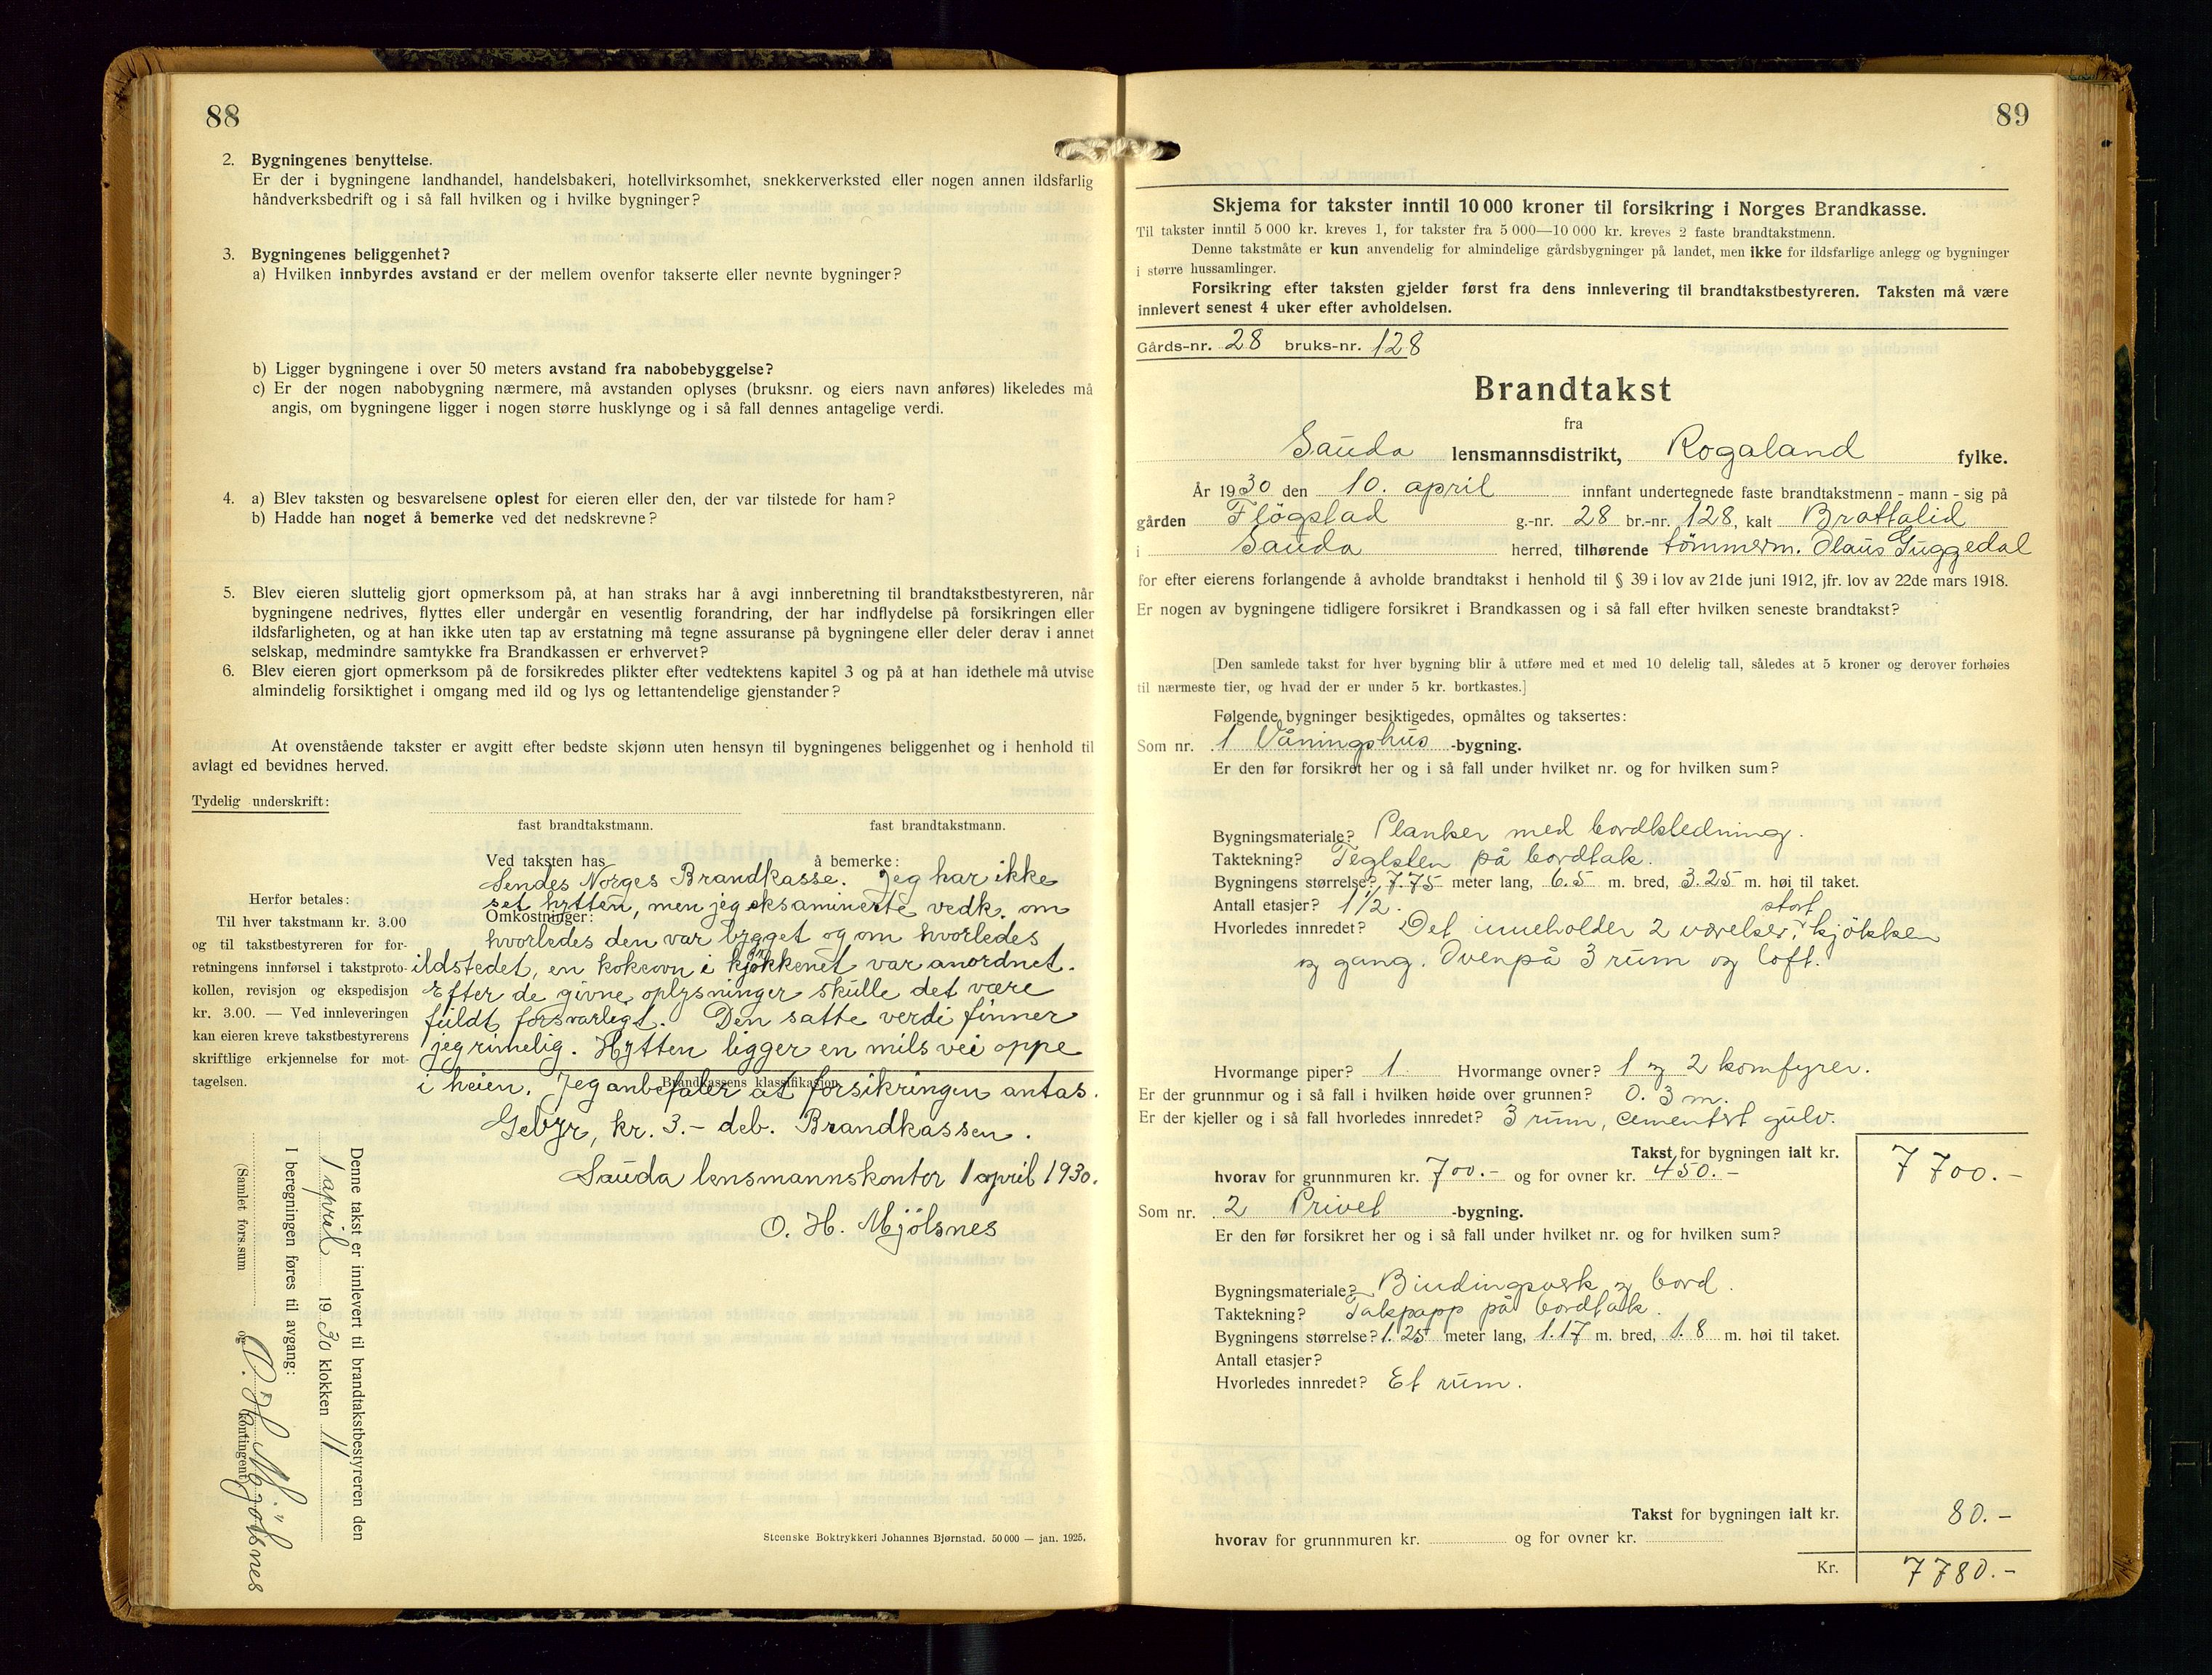 88
2. Bygningenes benyttelse.
Er der i bygningene landhandel, handelsbakeri, hotellvirksomhet, snekkerverksted eller nogen annen ildsfarlig
håndverksbedrift og i så fall hvilken og i hvilke bygninger?
3. Bygningenes beliggenhet?
a) Hvilken innbyrdes avstand er der mellem ovenfor takserte eller nevnte bygninger?
b) Ligger bygningene i over 50 meters avstand fra nabobebyggelse?
c) Er der nogen nabobygning nærmere, må avstanden oplyses (bruksnr. og eiers navn anføres) likeledes må
angis, om bygningene ligger i nogen større husklynge og i så fall dennes antagelige verdi.
4. a) Blev taksten og besvarelsene oplest for eieren eller den, der var tilstede for ham?
b) Hadde han noget å bemerke ved det nedskrevne?
5. Blev eieren sluttelig gjort opmerksom på, at han straks har å avgi innberetning til brandtakstbestyreren, når
bygningene nedrives, flyttes eller undergår en vesentlig forandring, der har indflydelse på forsikringen eller
ildsfarligheten, og at han ikke uten tap av erstatning må tegne assuranse på bygningene eller deler derav i annet
selskap, medmindre samtykke fra Brandkassen er erhvervet?
6. Blev eieren gjort opmerksom på de forsikredes plikter efter vedtektens kapitel 3 og på at han idethele må utvise
almindelig forsiktighet i omgang med ild og lys og lettantendelige gjenstander?
At ovenstående takster er avgitt efter bedste skjønn uten hensyn til bygningenes beliggenhet og i henhold til
avlagt ed bevidnes herved.
Tydelig underskrift:
fast brandtakstmann. fast brandtakstmann.
Ved taksten has å bemerke:
Sendes Norges Brandkasse. Jeg har ikke
set hytten, men jeg eksaminerte vedk. om
Omkostninger:
hvorledes den var bygget og om hvorledes
ildstedet, en kokeovn i kjøkkenet var anordnet.
Efter de givne oplysninger skulle det være
fuldt forsvarligt. Den satte verdi finner
jeg rimelig. Hytten ligger en mils vei oppe
Brandkassens klassifikasjon
i heien. Jeg anbefaler at forsikringen antas.
Gebyr, kr. 3.- deb. Brandkassen.
Sauda lensmannskontor 1 april 1930.
O. H. Mjölsnes
Herfor betales:
Til hver takstmann kr. 3.00
og til takstbestyreren for for-
retningens innførsel i takstproto-
kollen, revisjon og ekspedisjon
kr. 3.00. — Ved innleveringen
kan eieren kreve takstbestyrerens
skriftlige erkjennelse for mot-
tagelsen.
Denne takst er innlevert til brandtakstbestyreren den
1 april 1930 klokken 11
I beregningen føres til avgang:
O. H. Mjölsnes
(Samlet fors.sum og kontingent)
Steenske Boktrykkeri Johannes Bjørnstad. 50 000 — jan. 1925.
89
Skjema for takster inntil 10 000 kroner til forsikring i Norges Brandkasse.
Til takster inntil 5 000 kr. kreves 1, for takster fra 5 000—10 000 kr. kreves 2 faste brandtakstmenn.
Denne takstmåte er kun anvendelig for almindelige gårdsbygninger på landet, men ikke for ildsfarlige anlegg og bygninger
i større hussamlinger.
Forsikring efter taksten gjelder først fra dens innlevering til brandtakstbestyreren. Taksten må være
innlevert senest 4 uker efter avholdelsen.
Gårds-nr. 28 bruks-nr. 128
Brandtakst
fra
Sauda lensmannsdistrikt, Rogaland fylke.
År 1930 den 10. april innfant undertegnede faste brandtakstmenn - mann - sig på
gården Flögstad g.-nr. 28 br.-nr. 128, kalt Brattalid
i Sauda herred, tilhørende tömmerm. Olaus Guggedal
for efter eierens forlangende å avholde brandtakst i henhold til § 39 i lov av 21de juni 1912, jfr. lov av 22de mars 1918.
Er nogen av bygningene tidligere forsikret i Brandkassen og i så fall efter hvilken seneste brandtakst?
[Den samlede takst for hver bygning blir å utføre med et med 10 delelig tall, således at 5 kroner og derover forhøies
til nærmeste tier, og hvad der er under 5 kr. bortkastes.]
Følgende bygninger besiktigedes, opmåltes og taksertes:
Som nr. 1 Våningshus -bygning.
Er den før forsikret her og i så fall under hvilket nr. og for hvilken sum?
Bygningsmateriale? Planker med bordkledning.
Taktekning? Teglsten på bordtak.
Bygningens størrelse? 7.75 meter lang, 6.5 m. bred, 3.25 m. høi til taket.
Antall etasjer? 1 1/2.
Hvorledes innredet? Det inneholder 2 værelser, stort kjökken
og gang. Ovenpå 3 rum og loft.
Hvormange piper? 1 Hvormange ovner? 1 og 2 komfyrer.
Er der grunnmur og i så fall i hvilken høide over grunnen? 0.3 m.
Er der kjeller og i så fall hvorledes innredet? 3 rum, cementst gulv.
Takst for bygningen ialt kr. 7 700.-
hvorav for grunnmuren kr. 700.- og for ovner kr. 450.-
Som nr. 2 Privet -bygning.
Er den før forsikret her og i så fall under hvilket nr. og for hvilken sum?
Bygningsmateriale? Bindingsverk og bord.
Taktekning? Takpapp på bordtak.
Bygningens størrelse? 1.25 meter lang, 1.17 m. bred, 1.8 m. høi til taket.
Antall etasjer?
Hvorledes innredet? Et rum.
Takst for bygningen ialt kr. 80.-
hvorav for grunnmuren kr. og for ovner kr.
Kr. 7780.-